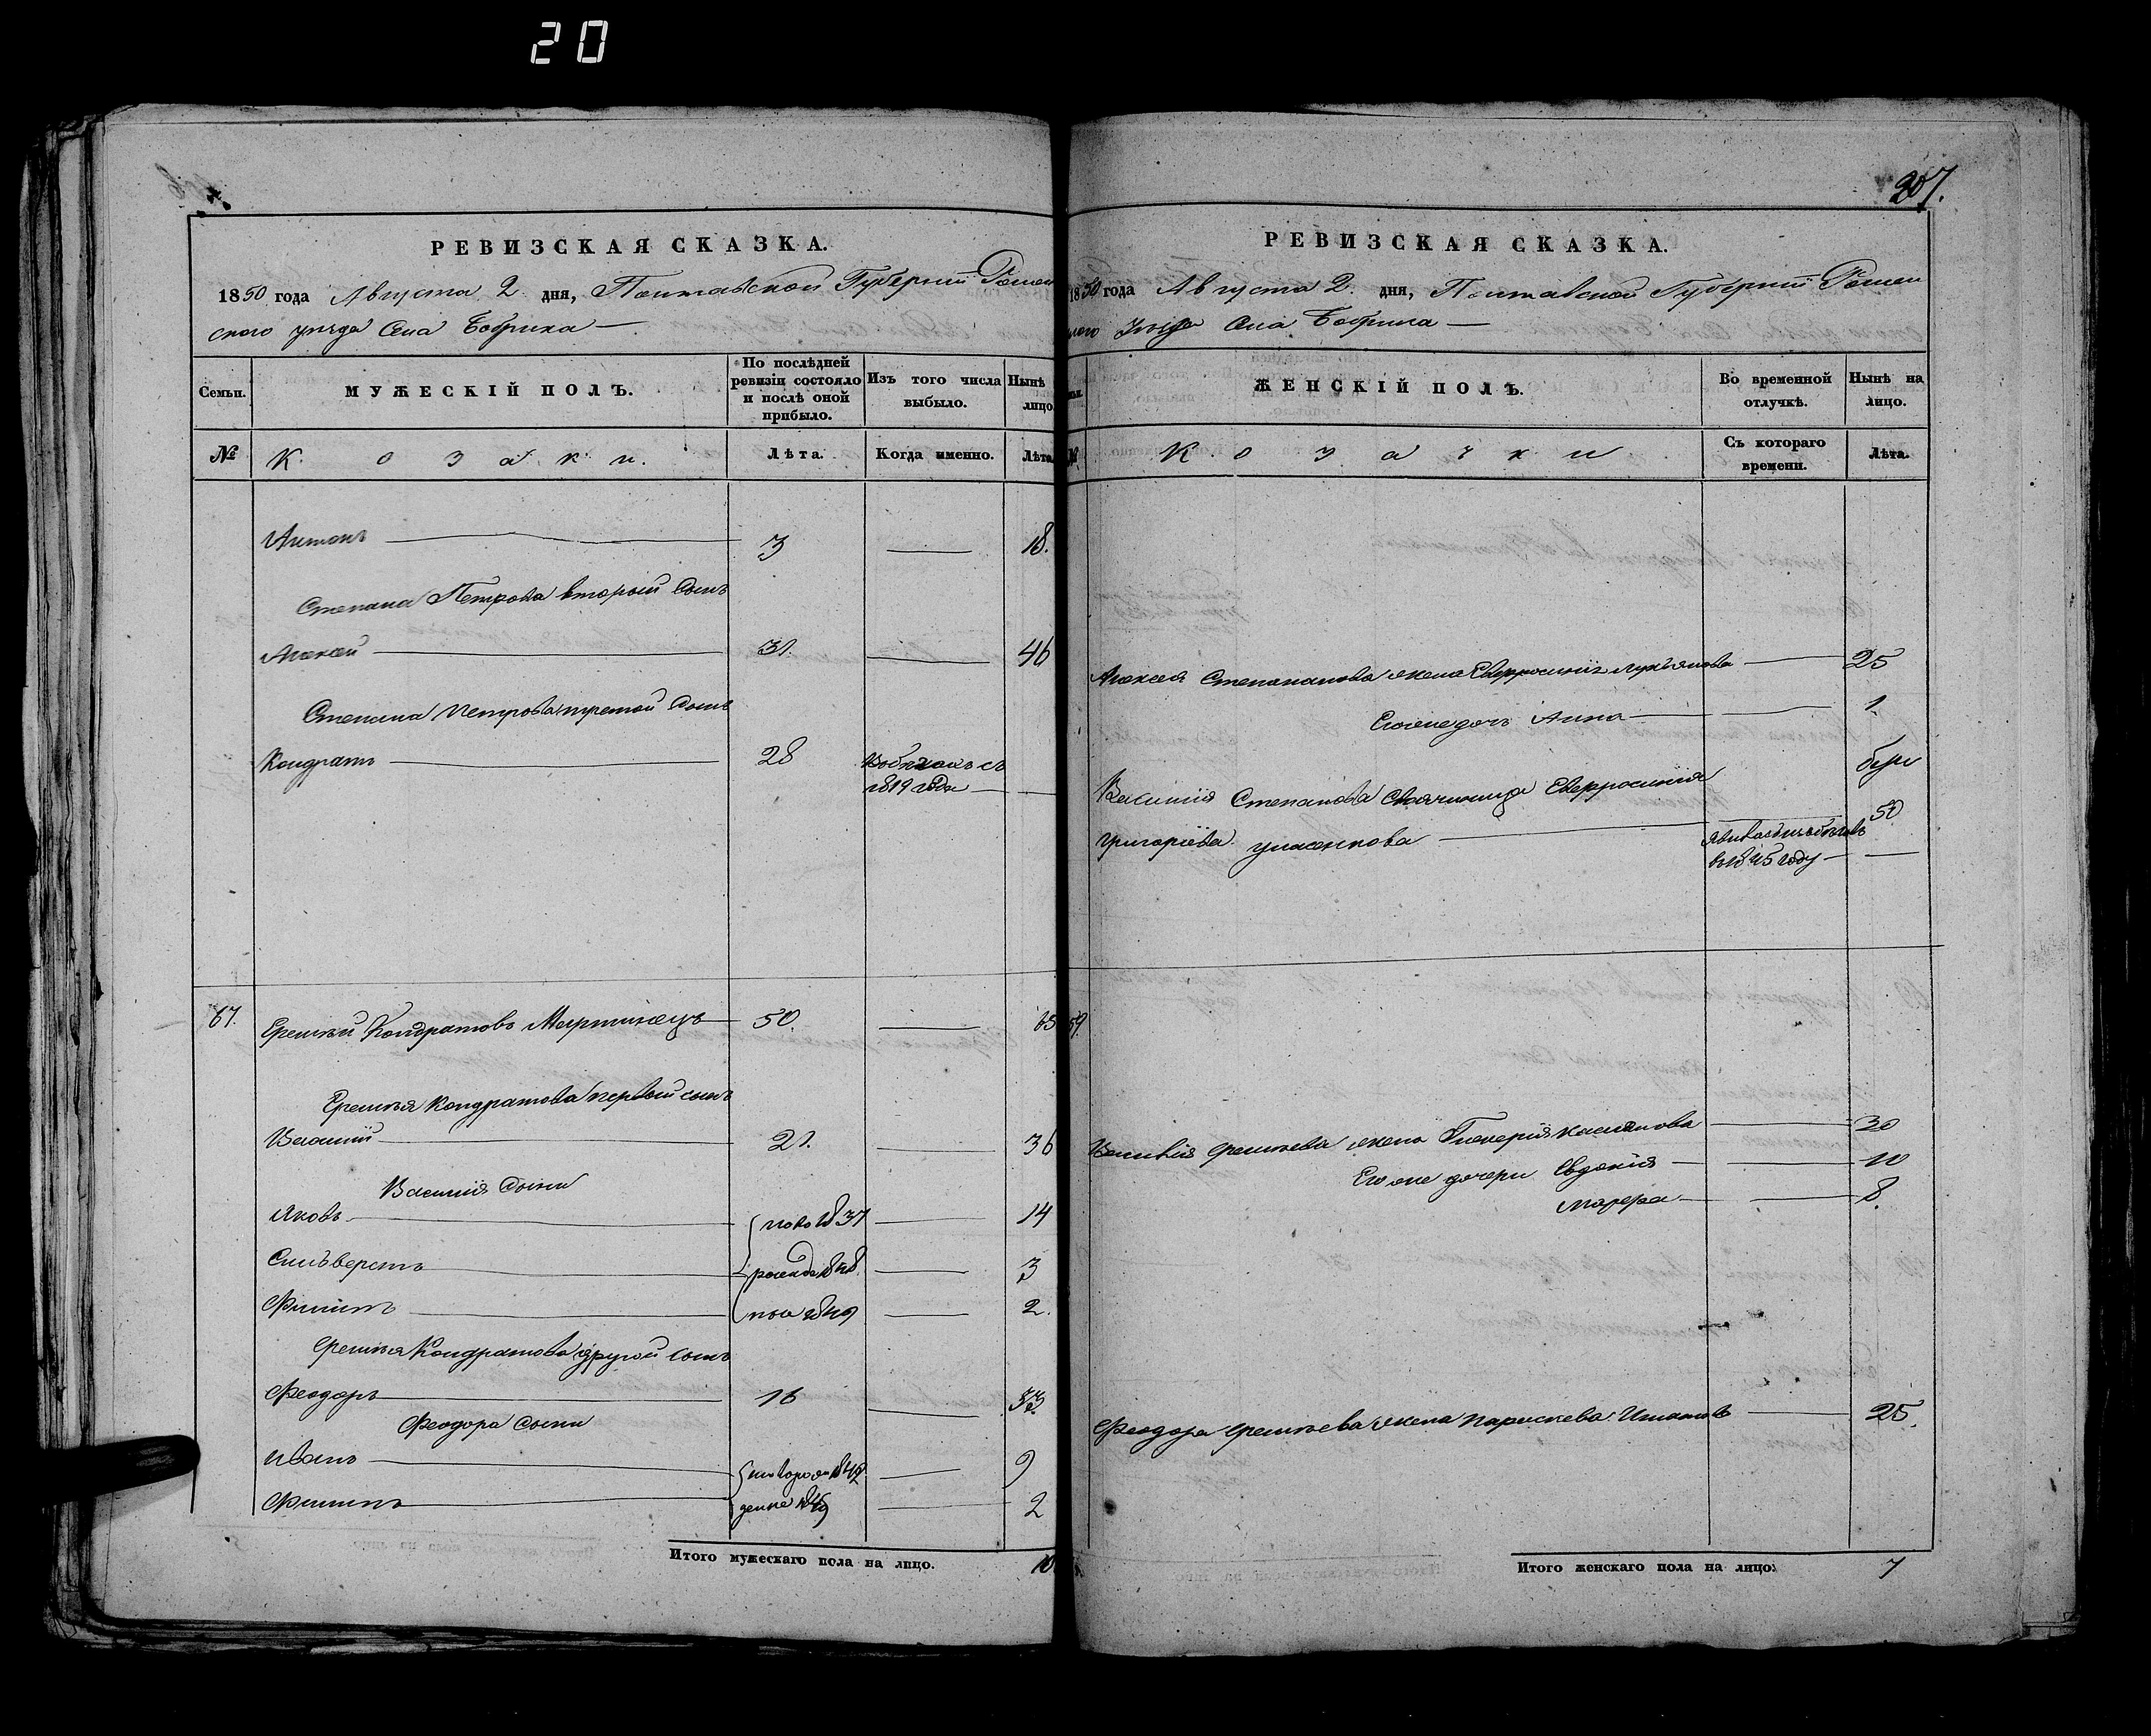 20
207.
РЕВИЗСКАЯ СКАЗКА.
1850 года Августа 2 дня, Полтавской Губерніи Ромен
ского уѣзда Села Бобрика —
Семьи.
МУЖЕСКІЙ ПОЛЪ.
По послѣдней
ревизіи состояло
и послѣ оной
прибыло.
Изъ того числа
выбыло.
Нынѣ
лицо.
№
Козаки.
Лѣта.
Когда именно.
Лѣта.
Антонъ — 3 — 18.
Степана Петрова вторый сынъ
Алексѣй — 31. — 46
Степана Петрова третій сынъ
Кондратъ — 28
1819 года —
67. Еремѣй Кондратовъ Мартинецъ — 50. — 65
Еремѣя Кондратова первый сынъ
Василій — 21. — 36
Василія сыны
Яковъ — ново 1837 — 14
Сильверстъ — рожде 1848. — 3
Филипъ — 1849 — 2.
Еремѣя Кондратова другой сынъ
Феодоръ — 16 — 33
Феодора сыны
Иванъ — 9
Филипъ — 1849 — 2
Итого мужескаго пола на лицо. 10
РЕВИЗСКАЯ СКАЗКА.
1850 года Августа 2. дня, Полтавской Губерніи Ромен
Уѣзда Села Бобрика —
ЖЕНСКІЙ ПОЛЪ.
Во временной
отлучкѣ.
Нынѣ на
лицо.
№
Козачки
Съ котораго
времени.
Лѣта.
Алексея Степанова жена Евфросинія Лукьянова — 25
Его же дочь Анна — 1
Василія Степанова Евфросинія
Григоріева — 50
въ 1845 году —
59.
Василія Еремѣева жена Гликерія Касіянова — 30
Его же дочери Евдокія — 10
— 8.
Феодора Еремѣева жена Параскева — 25.
Итого женскаго пола на лицо: 7